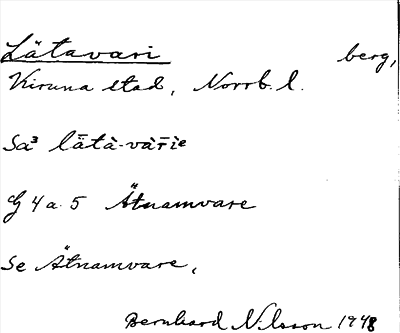 Lätavari berg,
Kiruna stad, Norrb. l.
Sa³ lā̀tà-và̄rìe
Gj 4 a. 5 Ätnamvare
Se Ätnamvare,
Bernhard Nilsson 1948